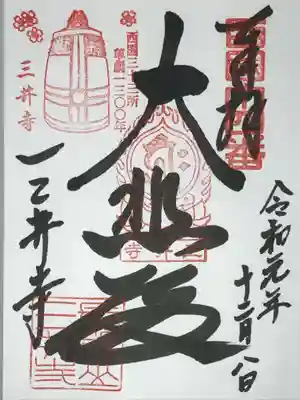 奉拝
大悲殿
三井寺
令和元年
十二月八日
西国三十三所
草創一三〇〇年
三井寺